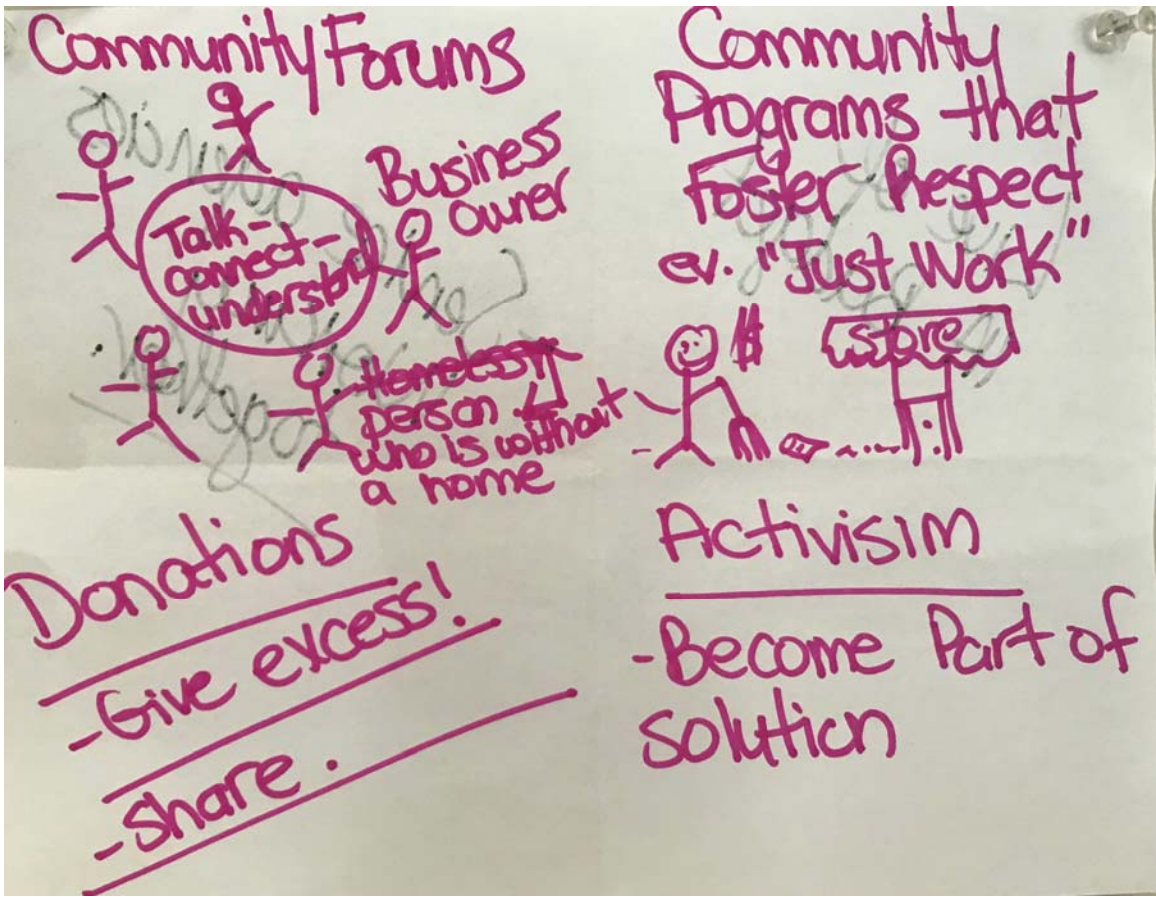 Community Forums
Talk-
connect-
understand
Business
owner
Homeless
person
who is without
a home
Donations
-Give excess!
-Share.
Community
Programs that
Foster Respect
ex. "Just Work"
$
store
Activisim
-Become Part of
solution